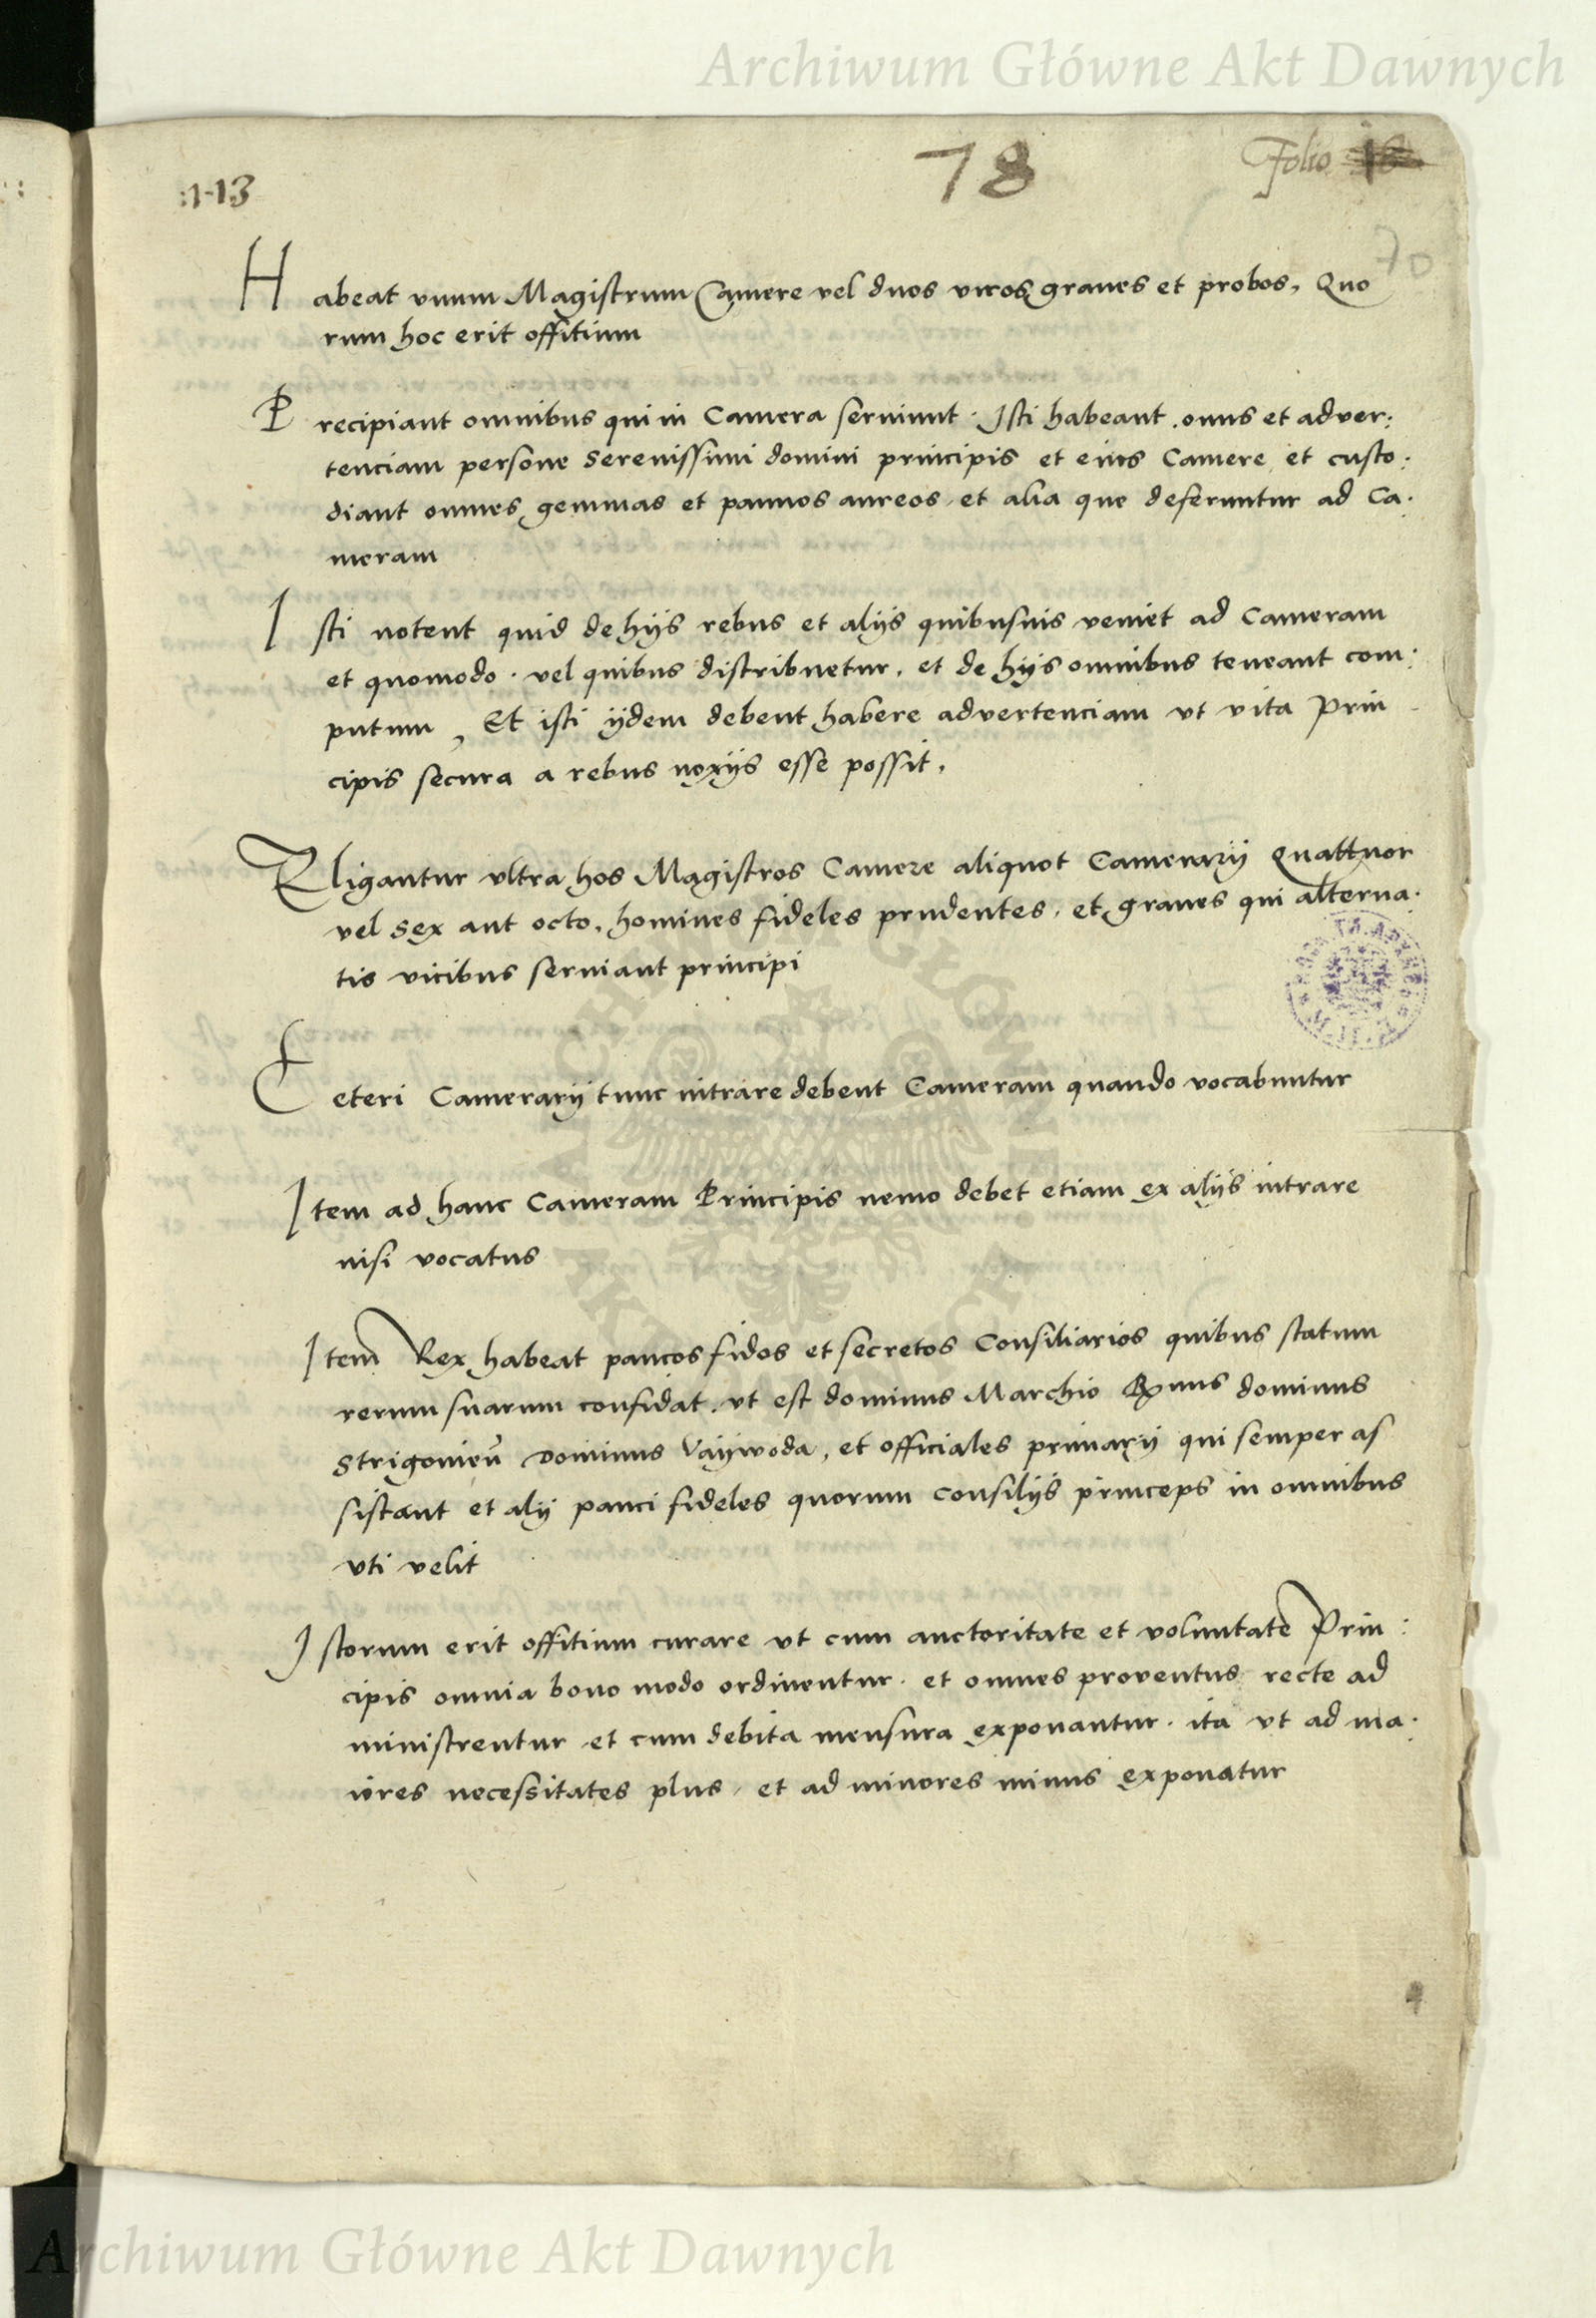 Archiwum Główne Akt Dawnych
78
Folio
:1-13
70
Habeat vnum Magistrum Camere vel duos viros graues et probos, Quo
rum hoc erit offitium
Precipiant omnibus qui in Camera seruiunt. Isti habeant onus et adver:
tenciam persone serenissimi domini principis et eius Camere et custo:
diant omnes gemmas et pannos aureos et alia que deferuntur ad Ca:
meram
Isti notent quid de hijs rebus et alijs quibusuis veniet ad Cameram
et quomodo. vel quibus distribuetur, et de hijs omnibus teneant com:
putum, Et isti ijdem debent habere advertenciam vt vita Prin
cipis secura a rebus noxijs esse possit,
Eligantur vltra hos Magistros Camere aliquot Camerarij Quattuor
vel sex aut octo, homines fideles prudentes, et graues qui alterna:
tis vicibus seruiant principi
Ceteri Camerarij tunc intrare debent Cameram quando vocabuntur
Item ad hanc Cameram Principis nemo debet etiam ex alijs intrare
nisi vocatus
Item Rex habeat paucos fidos et secretos Consiliarios quibus statum
rerum suarum confidat. vt est dominus Marchio Rmus dominus
Strigonien̄ Dominus Vayiwoda, et officiales primarij qui semper as
sistant et alij pauci fideles quorum consilijs princeps in omnibus
vti velit
Istorum erit offitium curare vt cum auctoritate et voluntate Prin:
cipis omnia bono modo ordinentur. et omnes proventus recte ad
ministrentur et cum debita mensura exponantur. ita vt ad ma:
iores necessitates plus, et ad minores minus exponatur
Archiwum Główne Akt Dawnych